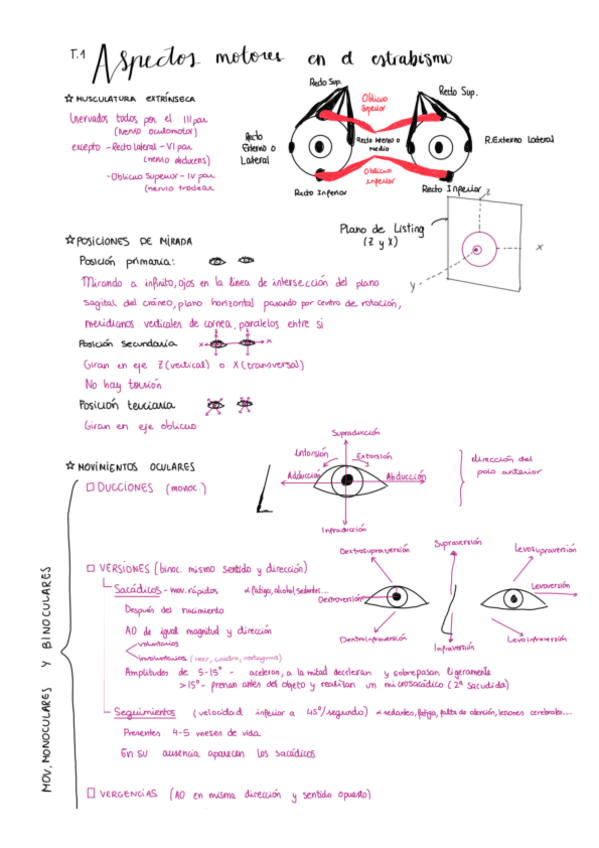 T.1 Aspectos motores en el estrabismo
☆ MUSCULATURA EXTRÍNSECA
Inervados todos por el III par
(nervio oculomotor)
excepto - Recto lateral - VI par
(nervio abducens)
- Oblicuo Superior - IV par
(nervio troclear
Recto Sup.
Oblicuo Superior
Recto Sup.
Recto Externo o Lateral
Recto Interno o Medio
R. Externo Lateral
Oblicuo inferior
Recto Inferior
Recto Inferior
Plano de Listing
(Z y X)
Z
X
Y
☆ POSICIONES DE MIRADA
Posición primaria:
Mirando a infinito, ojos en la línea de intersección del plano
sagital del cráneo, plano horizontal pasando por centro de rotación,
meridianos verticales de cornea, paralelos entre si
Posición secundaria
X
X
Giran en eje Z (vertical) o X (transversal)
No hay torsión
Posición terciaria
Giran en eje oblicuo
☆ MOVIMIENTOS OCULARES
MOV. MONOCULARES Y BINOCULARES
□ DUCCIONES (monoc.)
Supraducción
Intorsión
Extorsión
Adducción
Abducción
Infraducción
dirección del
polo anterior
□ VERSIONES (binoc. mismo sentido y dirección)
Sacádicos - mov. rápidos α fatiga, alcohol, sedantes...
Después del nacimiento
AO de igual magnitud y dirección
voluntarios
involuntarios (leer, cuadro, nistagmus)
Dextrosupraversión
Supraversión
Levosupraversión
Dextroversión
Levoversión
Dextroinfraversión
Infraversión
Levoinfraversión
Amplitudes de 5-15° - aceleran, a la mitad deceleran y sobrepasan ligeramente
>15° - frenan antes del objeto y realizan un microsacádico (2ª sacudida)
Seguimientos (velocidad inferior a 45°/segundo) α sedantes, fatiga, falta de atención, lesiones cerebrales...
Presentes 4-5 meses de vida
En su ausencia aparecen los sacádicos
□ VERGENCIAS (AO en misma dirección y sentido opuesto)